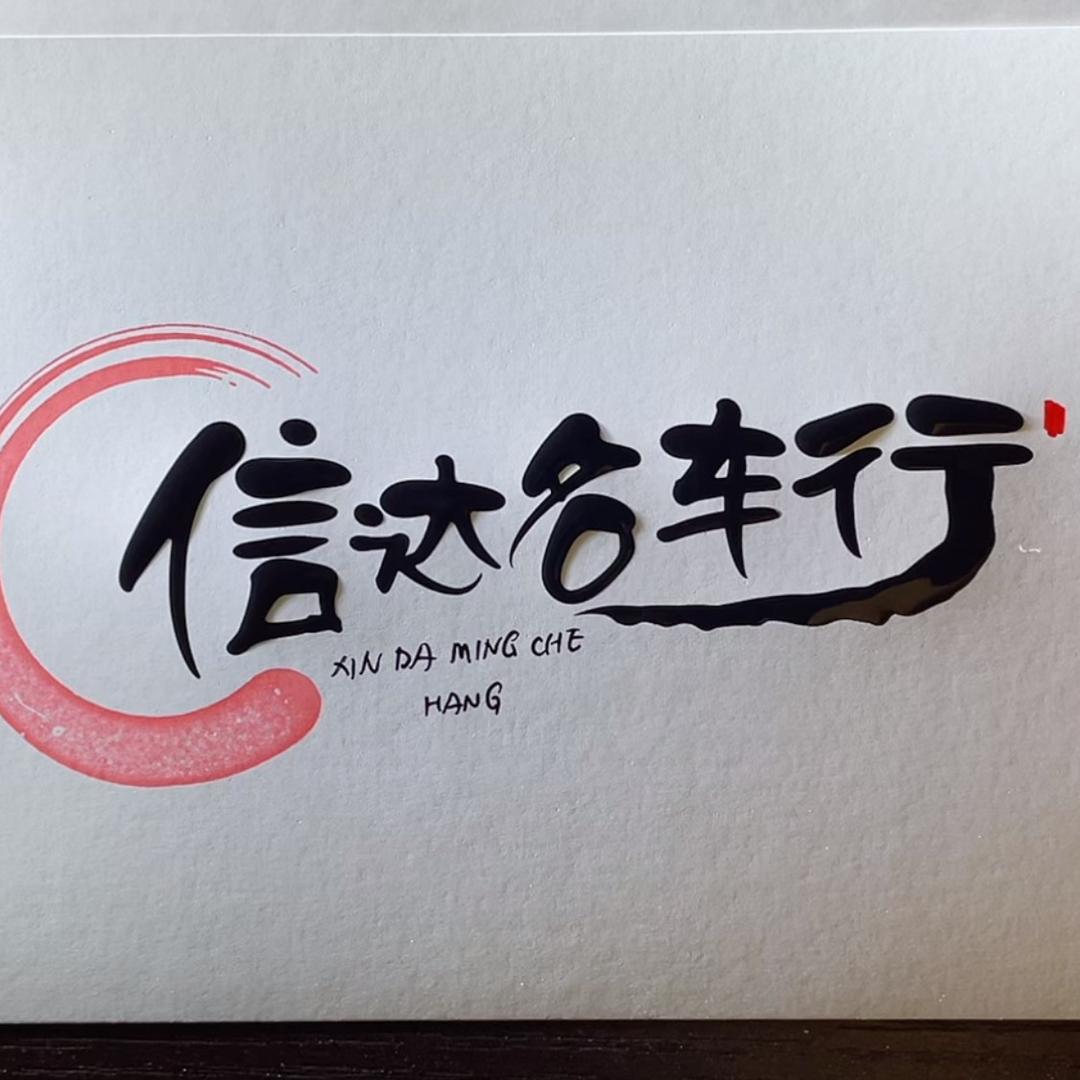 信达名车行
XIN DA MING CHE
HANG